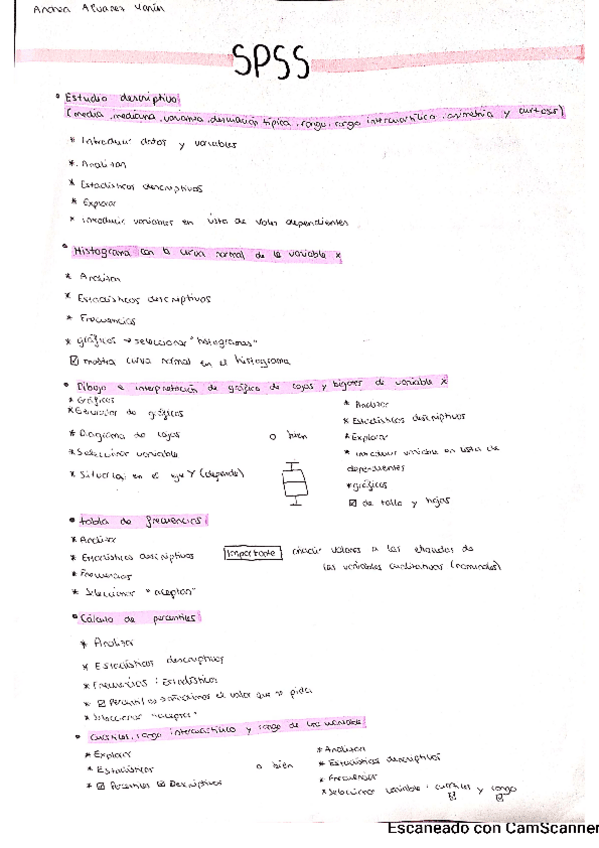 Andrea Alvarez Marín
SPSS
• Estudio descriptivo
(media, mediana, varianza, desviación típica, rango, rango intercuartílico, asimetría y curtosis)
* Introducir datos y variables
* Analizar
* Estadísticos descriptivos
* Explorar
* Introducir variables en lista de valores dependientes
• Histograma con la curva normal de la variable x
* Analizar
* Estadísticos descriptivos
* Frecuencias
* gráficos → seleccionar "histogramas"
☑ mostrar curva normal en el histograma
• Dibujo e interpretación de gráfico de cajas y bigotes de variable x
* Gráficos
* Generador de gráficos
* Diagrama de cajas
* Seleccionar variable
* Situarla en el eje Y (depende)
o bien
* Analizar
* Estadísticos descriptivos
* Explorar
* introducir variable en lista de
dependientes
* gráficos
☑ de tallo y hojas
• tabla de frecuencias
* Analizar
* Estadísticos descriptivos
* Frecuencias
* Seleccionar "aceptar"
Importante añadir valores a las etiquetas de
las variables cualitativas (nominales)
• Cálculo de percentiles
* Analizar
* Estadísticos descriptivos
* Frecuencias : Estadísticos
* ☑ Percentiles → añadimos el valor que se pida
* Seleccionar "aceptar"
• Cuartiles, rango intercuartílico y rango de las variables
* Explorar
* Estadísticos
* ☑ Percentiles ☑ Descriptivos
o bien
* Analizar
* Estadísticos descriptivos
* Frecuencias
* Seleccionar variable : cuartiles y rango
☑ ☑
Escaneado con CamScanner